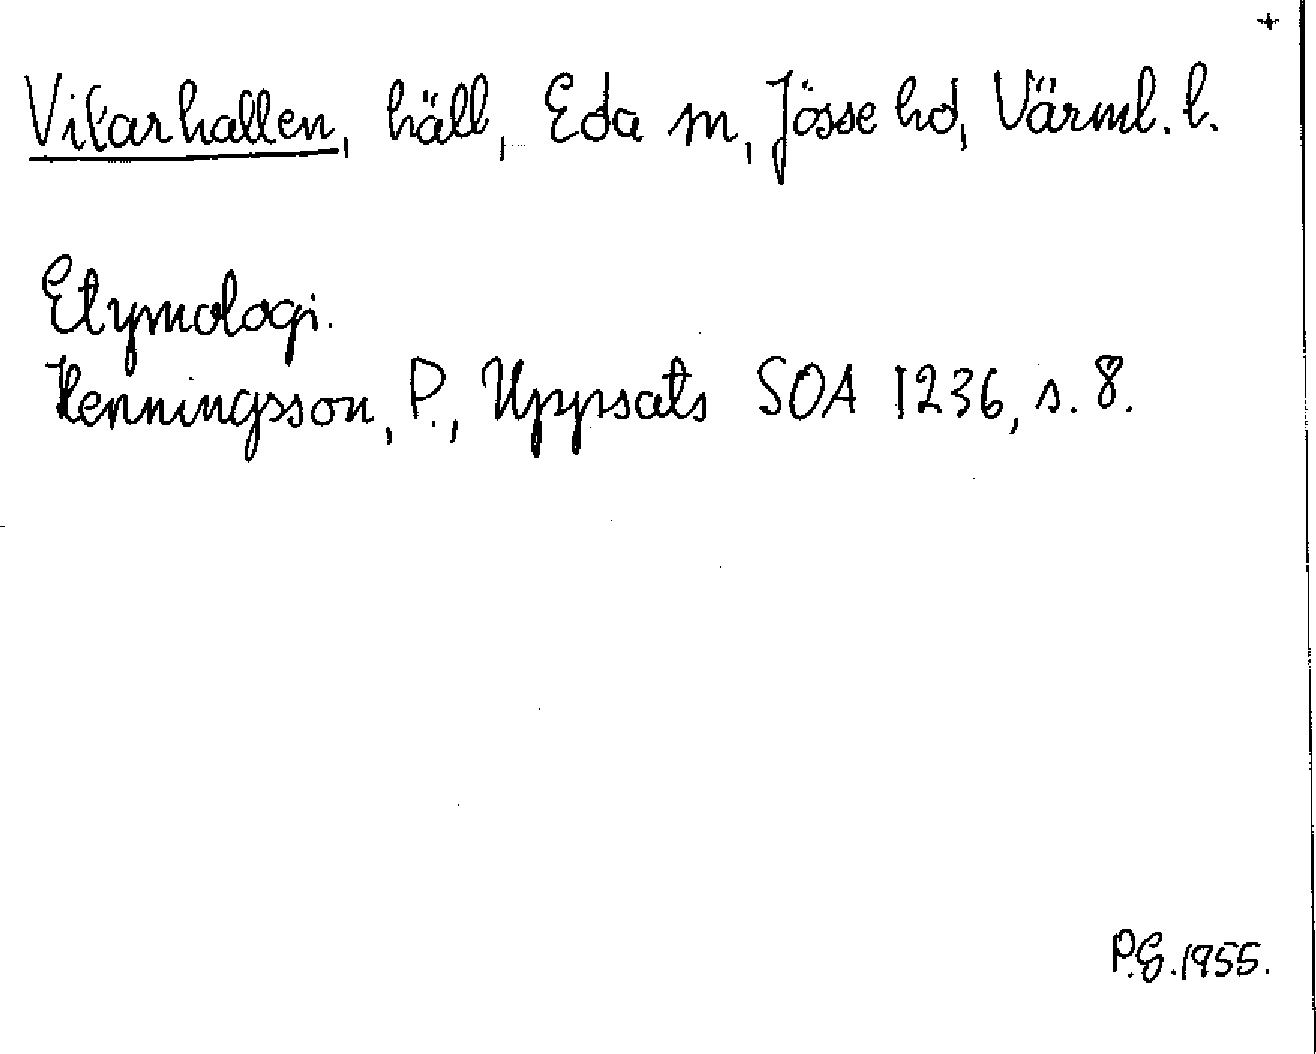 +
Vitarhallen, häll, Eda m, Jösse hd, Värml. l.
Etymologi.
Henningsson, P., Uppsats SOA 1236, s. 8.
P.G. 1955.